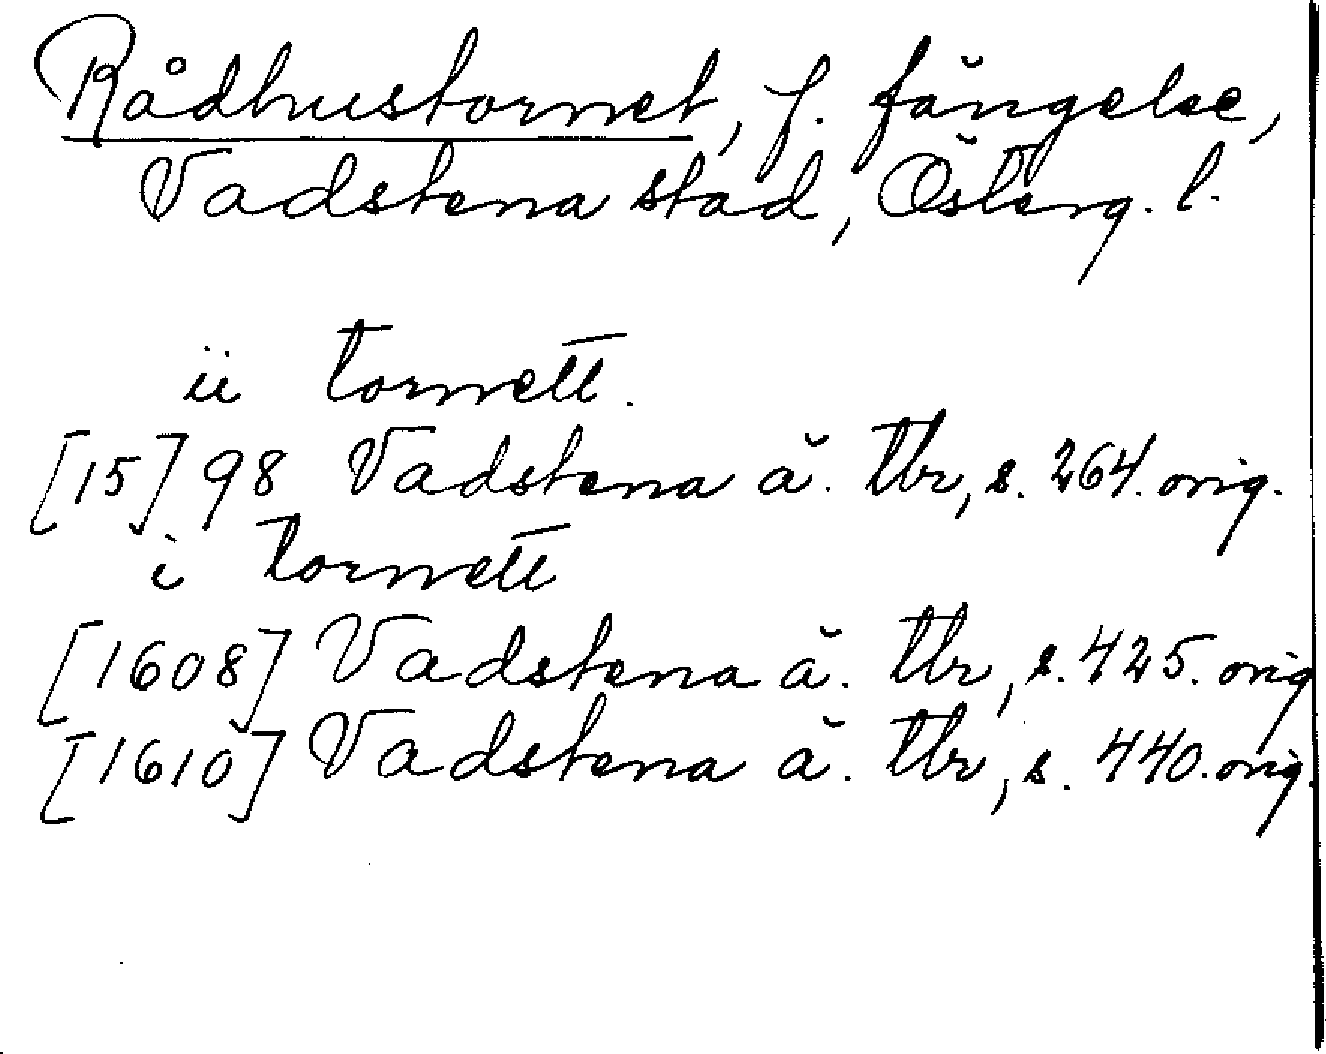 Rådhustornet, f. fängelse,
Vadstena stad, Österg. l.
ii tornett.
[15]98 Vadstena ä. tbr, s. 264. orig.
i tornett
[1608] Vadstena ä. tbr, s. 425. orig
[1610] Vadstena ä. tbr, s. 440. orig.